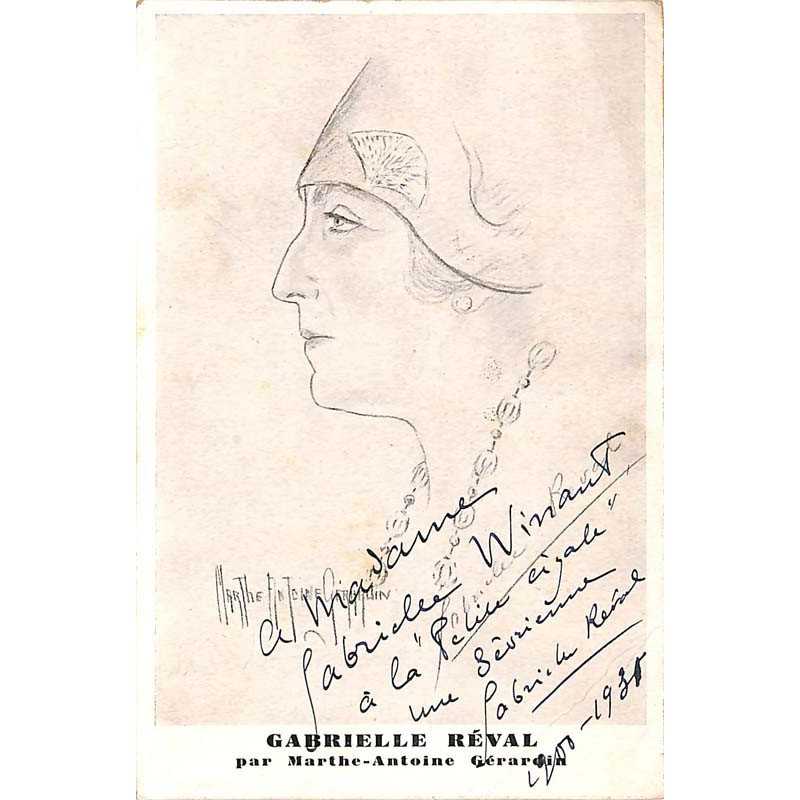 MARTHE ANTOINE GERARDIN
A Madame
Gabrielle
à la "Petite cigale"
une Sévrienne
Gabrielle Réval
1900-193
GABRIELLE RÉVAL
par Marthe-Antoine Gérardin